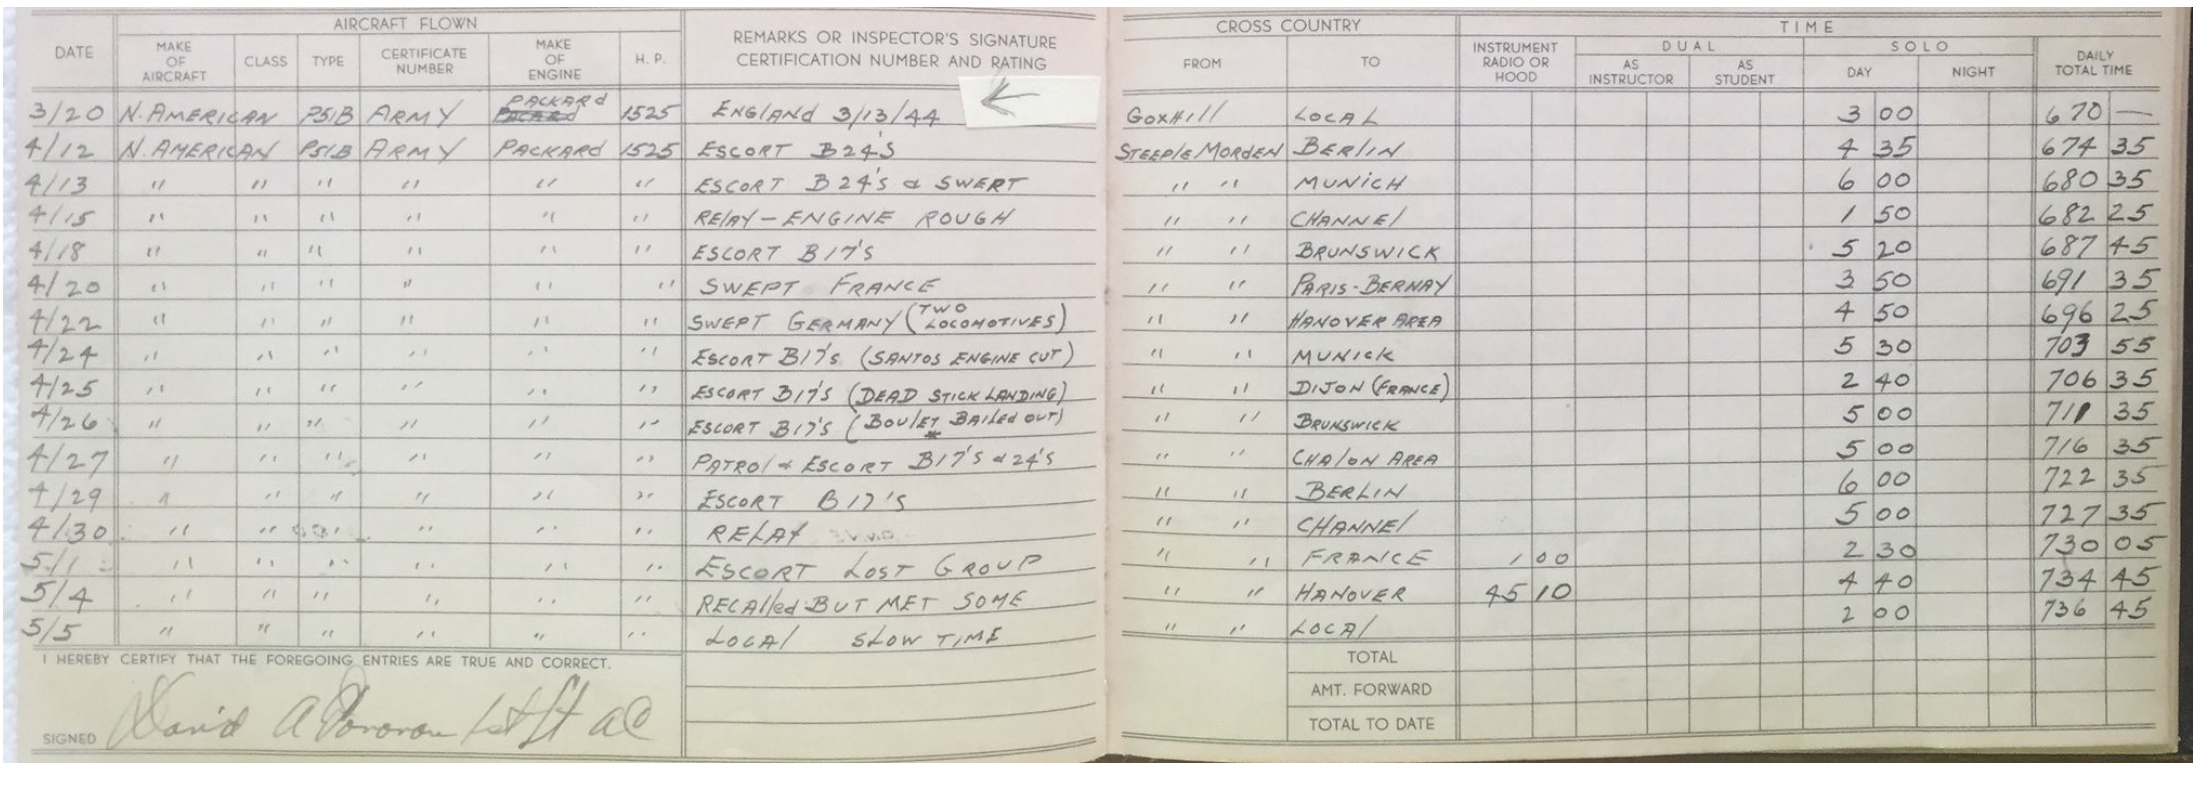 AIRCRAFT FLOWN
DATE MAKE OF AIRCRAFT CLASS TYPE CERTIFICATE NUMBER MAKE OF ENGINE H. P. REMARKS OR INSPECTOR'S SIGNATURE CERTIFICATION NUMBER AND RATING
CROSS COUNTRY TIME
FROM TO INSTRUMENT RADIO OR HOOD DUAL AS INSTRUCTOR AS STUDENT SOLO DAY NIGHT DAILY TOTAL TIME
3/20 N. AMERICAN P51B ARMY PACKARD 1525 ENGLAND 3/13/44 GOXHILL LOCAL 3 00 670 —
4/12 N. AMERICAN P51B ARMY PACKARD 1525 ESCORT B24'S STEEPLE MORDEN BERLIN 4 35 674 35
4/13 " " " " " " ESCORT B24'S & SWERT " " MUNICH 6 00 680 35
4/15 " " " " " " RELAY - ENGINE ROUGH " " CHANNEL 1 50 682 25
4/18 " " " " " " ESCORT B17'S " " BRUNSWICK 5 20 687 45
4/20 " " " " " " SWEPT FRANCE " " PARIS-BERNAY 3 50 691 35
4/22 " " " " " " SWEPT GERMANY (TWO LOCOMOTIVES) " " HANOVER AREA 4 50 696 25
4/24 " " " " " " ESCORT B17'S (SANTOS ENGINE CUT) " " MUNICK 5 30 703 55
4/25 " " " " " " ESCORT B17'S (DEAD STICK LANDING) " " DIJON (FRANCE) 2 40 706 35
4/26 " " " " " " ESCORT B17'S (BOULET BAILED OUT) * " " BRUNSWICK 5 00 711 35
4/27 " " " " " " PATROL & ESCORT B17'S & 24'S " " CHALON AREA 5 00 716 35
4/29 " " " " " " ESCORT B17'S " " BERLIN 6 00 722 35
4/30 " " " " " RELAY " " CHANNEL 5 00 727 35
5/1 " " " " " " ESCORT LOST GROUP " " FRANCE 1 00 2 30 730 05
5/4 " " " " " " RECALLED BUT MET SOME " " HANOVER 45 10 4 40 734 45
5/5 " " " " " " LOCAL SLOW TIME " " LOCAL 2 00 736 45
I HEREBY CERTIFY THAT THE FOREGOING ENTRIES ARE TRUE AND CORRECT.
SIGNED David A Donovan 1st Lt AC
TOTAL
AMT. FORWARD
TOTAL TO DATE